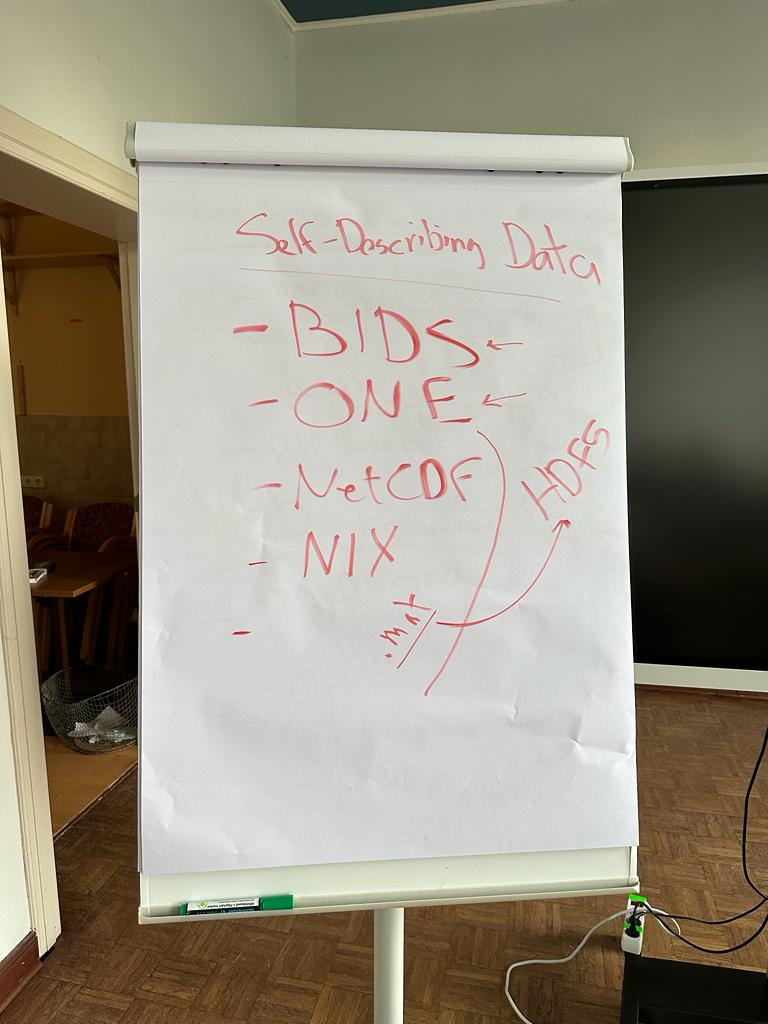 Self-Describing Data
- BIDS ←
- ONE ←
- NetCDF
HDF5
- NIX
.mat
-